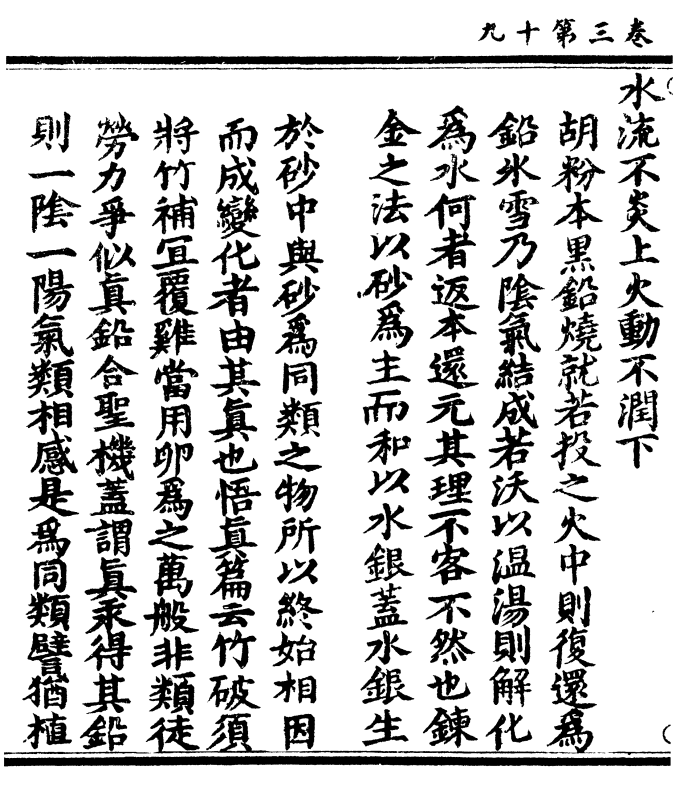 卷三第十九
水流不炎上火動不潤下
胡粉本黑鉛燒就若投之火中則復還爲
鉛氷雪乃陰氣結成若沃以温湯則解化
爲水何者返本還元其理不容不然也鍊
金之法以砂爲主而和以水銀蓋水銀生
於砂中與砂爲同類之物所以終始相因
而成變化者由其眞也悟眞篇云竹破須
將竹補冝覆雞當用卵爲之萬般非類徒
勞力爭似眞鉛合聖機蓋謂眞汞得其鉛
則一陰一陽氣類相感是爲同類譬猶植